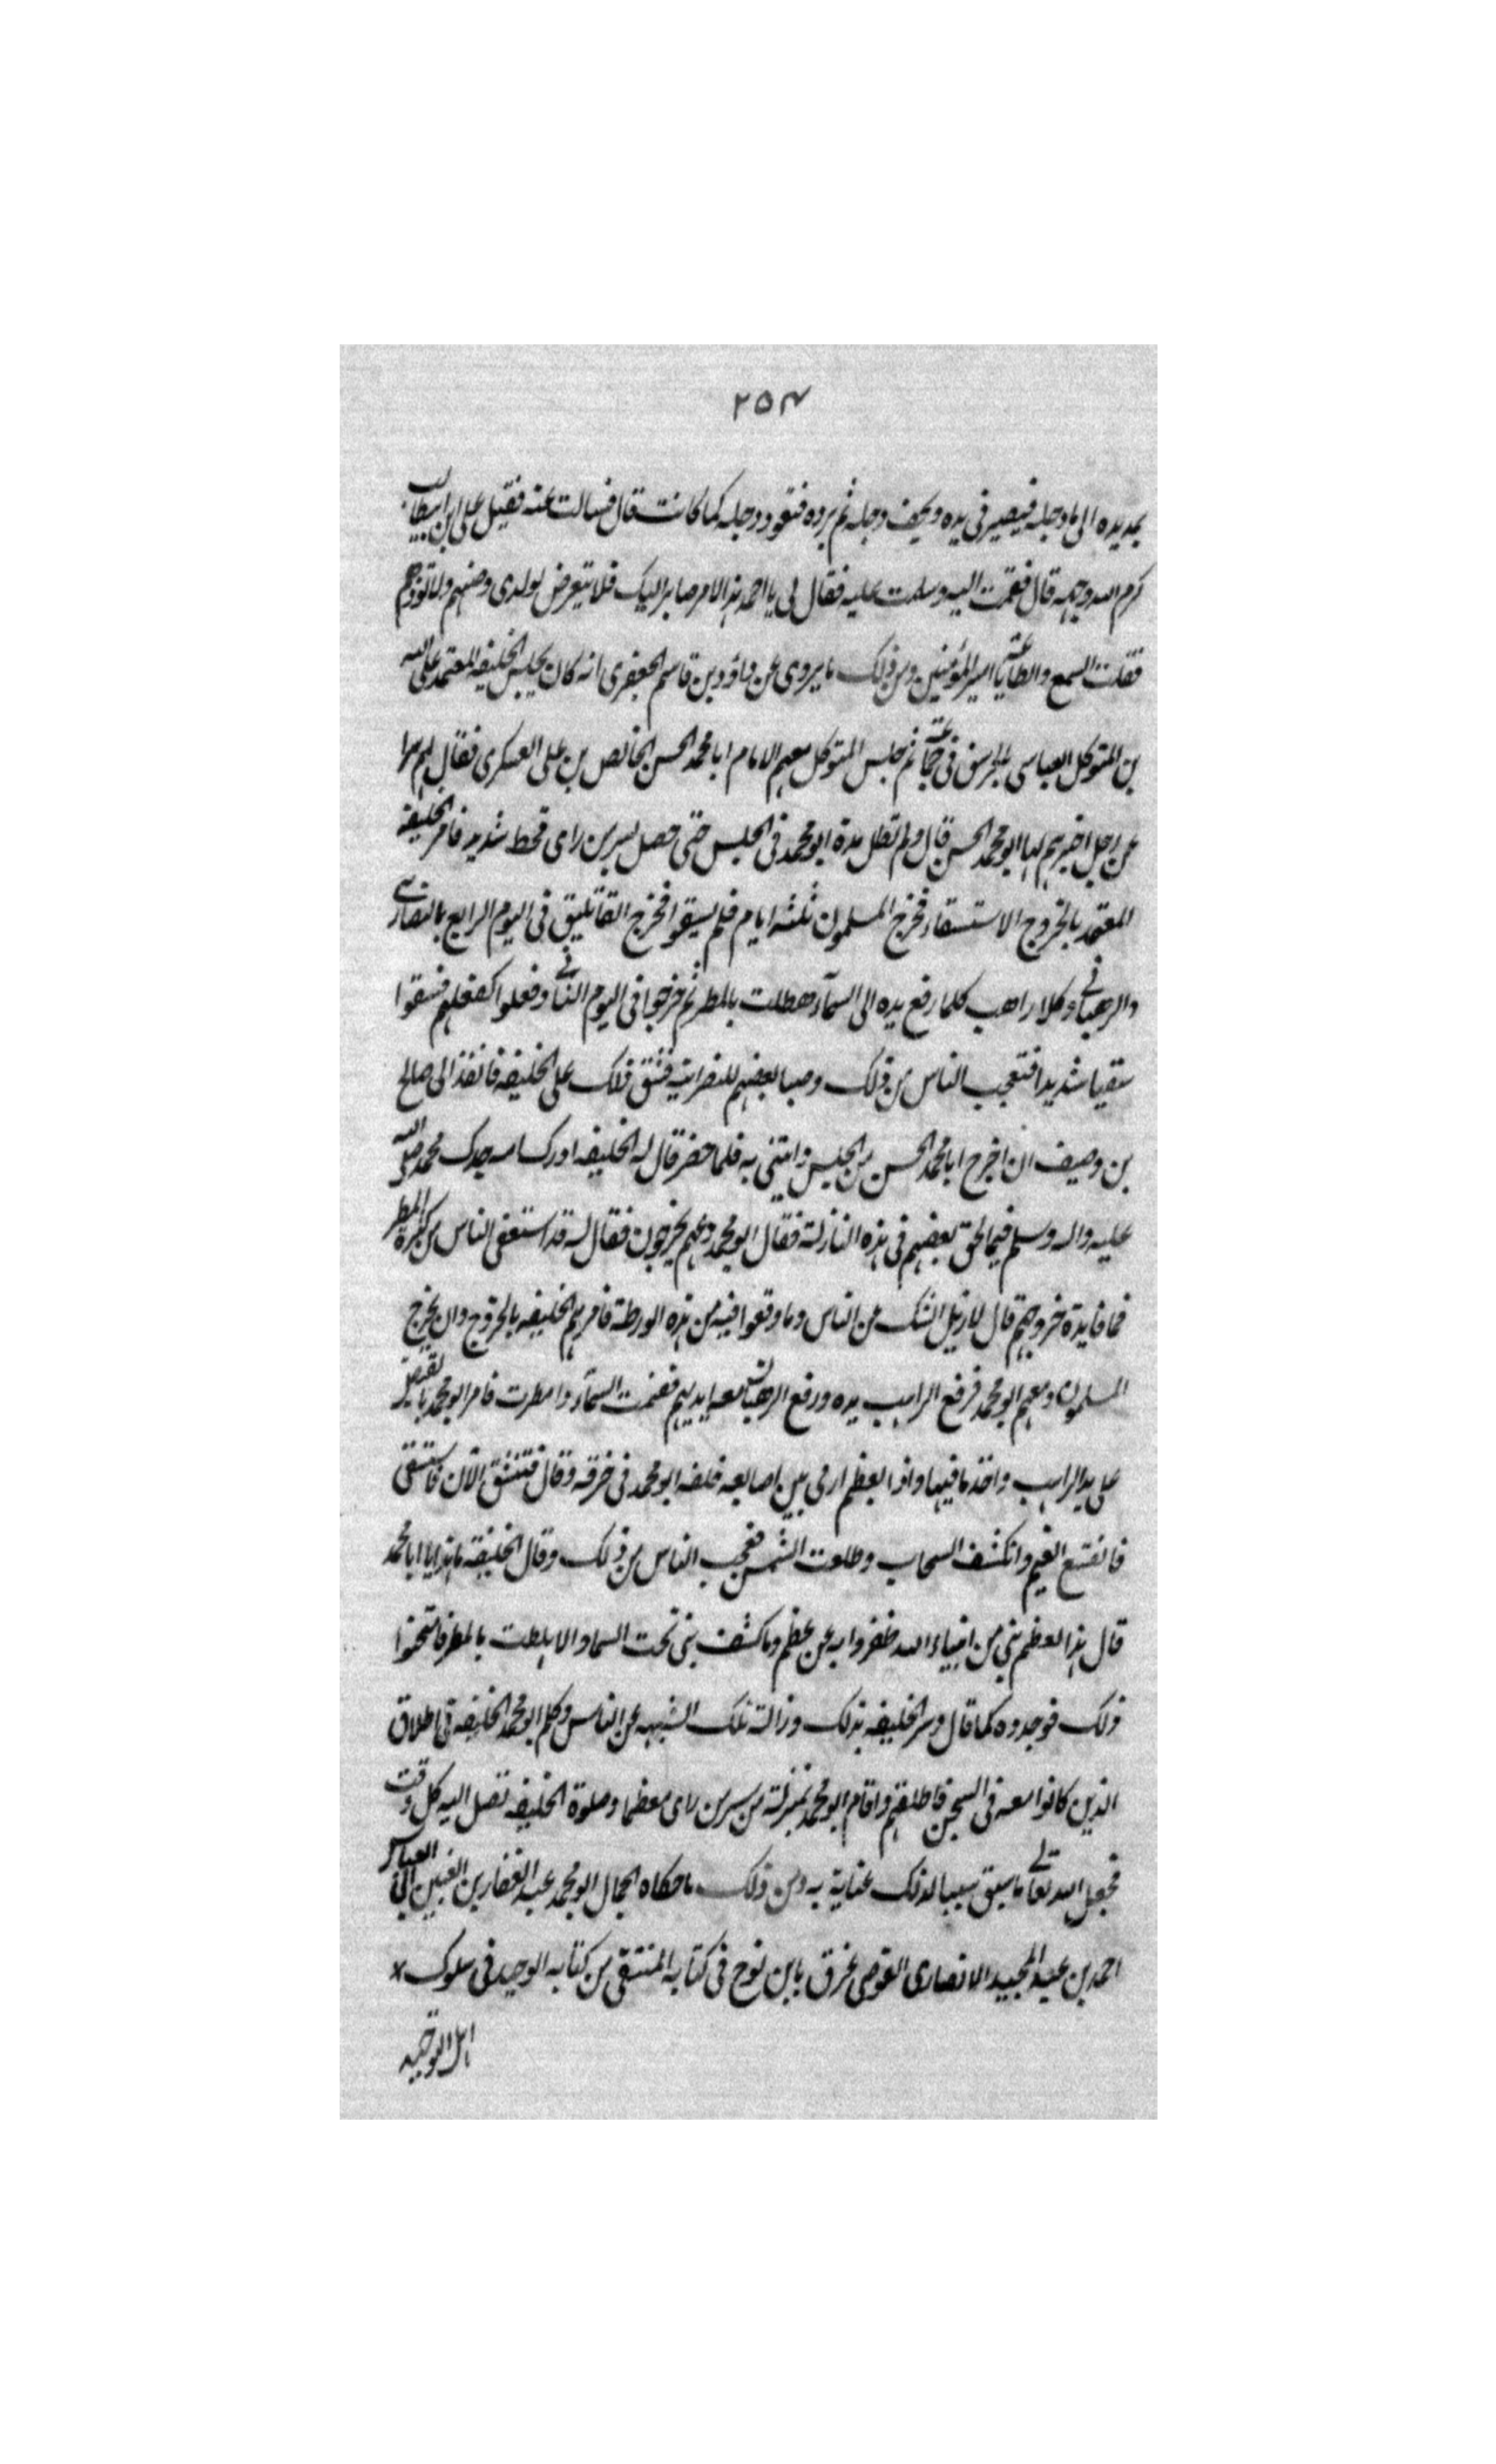 ۲۵۴
يمد يده الى ماء دجلة فيصير فى يده ويجف دجلة ثم يرده فتعود دجلة كما كانت قال فسالت عنه فقيل على ابن ابيطالب
كرم الله وجهه قال فقمت اليه وسلمت عليه فقال لى يا احمد هذا الامر صاير اليك فلا تتعرض لولدى وصنهم ولا تؤذهم
فقلت السمع والطاعة يا امير المؤمنين ومن ذلك ما يروى عن داؤد بن قاسم الجعفرى انه كان بحبس الخليفه المعتمد على الله
بن المتوكل العباسى فى جماعة ثم حبس المتوكل معهم الامام ابا محمد الحسن الخالص بن على العسكرى فقال لهم سرا
عن رجل اخبرهم بها ابو محمد الحسن قال ولم تطل مدة ابو محمد فى الحبس حتى حصل بسر من راى قحط شديد فامر الخليفة
المعتمد بالخروج الاستسقاء فخرج المسلمون ثلثه ايام فلم يسقوا فخرج القاثليق فى اليوم الرابع بالنصارى
والرهبانى وكلا راهب كلما رفع يده الى السمآء هطلت بالمطر ثم خرجوا فى اليوم الثانى وفعلوا كفعلهم فسقوا
سقيا شديدا فتعجب الناس من ذلك وصبا بعضهم للنصرانية فشق ذلك على الخليفه فانفذ الى صالح
بن وصيف ان اخرج ابا محمد الحسن من الحبس وائتنى به فلما حضر قال له الخليفه ادرك امه جدك محمد صلى الله
عليه واله وسلم فيما لحق بعضهم فى هذه النازلة فقال ابو محمد دعهم يخرجون فقال له قد استعفى الناس من كثرة المطر
فما فايدة خروجهم قال لازيل الشك عن الناس وما وقعوا فيه من هذه الورطة فامرهم الخليفه بالخروج وان يخرج
المسلمون ومعهم ابو محمد فرفع الراهب يده ورفع الرهبان معه ايديهم فغيمت السمآء وامطرت فامر ابو محمد بالقبض
على يد الراهب واخذ ما فيها واذا بعظم ادمى بين اصابعه فلفه ابو محمد فى خرقة وقال الآن فاستسقى
فانقشع الغيم وانكشف السحاب وطلعت الشمس فعجب الناس من ذلك وقال الخليفة ما هذا يا ابا محمد
قال هذا العظم نبى من انبياء الله ظفروا به عن عظم وما كشف نبى تحت السماء الا هطلت بالمطر فامتحنوا
ذلك فوجدوه كما قال وسر الخليفه بذلك وزالت تلك الشبهه عن الناس وكلم ابو محمد الخليفه فى اطلاق
الذين كانوا معه فى السجن فاطلقهم واقام ابو محمد بمنزلة من سر من راى معظما وصلوة الخليفه تصل اليه كل وقت
فجعل الله تعالى ما سبق سببا لذلك عناية به ومن ذلك ما حكاه الجمال ابو محمد عبد الغفار بن العباس
احمد بن عبد المجيد الانصارى القوصى عرف بابن نوح فى كتابه المنتقى من كتابه الوحيد فى سلوك
اهل التوحيد